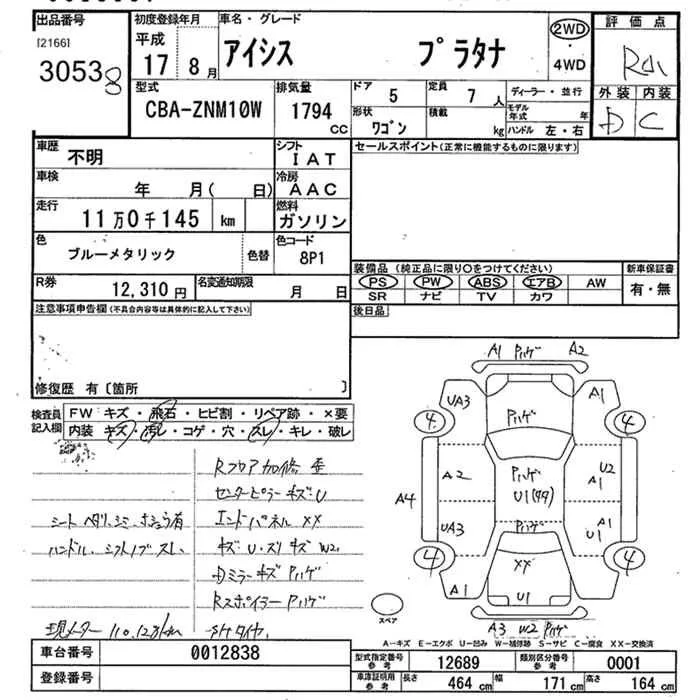 出品番号 初度登録年月 車名・グレード 評価点
[2166] 平成 アイシス プラタナ 2WD・4WD
30538 17 8月 RA1
型式 排気量 ドア 定員 ディーラー・並行 外装 内装
CBA-ZNM10W 1794cc 5 7人 モデル年式 年 D C
形状 ワゴン 積載 kg ハンドル 左・右
車歴 不明 シフト IAT セールスポイント(正常に機能するものに限ります)
車検 年 月( 日) 冷房 AAC
走行 11万0千145 km 燃料 ガソリン
色 ブルーメタリック 色替 色コード 8P1
装備品 (純正品に限り○をつけてください) 新車保証書
R券 12,310円 名変通知期限 月 日 PS PW ABS エアB AW 有・無
SR ナビ TV カワ
注意事項申告欄(不具合内容等は具体的に記入して下さい) 後日品
修復歴 有〔箇所 〕
検査員記入欄 FW キズ・飛石・ヒビ割・リペア跡・×要
内装 キズ・汚レ・コゲ・穴・スレ・キレ・破レ
Rフロア加修 歪
センターピラーキズU
シート ヘタリ、シミ、ホショウ有 エンドパネルXX
ハンドル、シフトノブスレ キズU・スリキズW2
Dミラーキズ Pハゲ
Rスポイラー Pハゲ
現メーター110,123km
A1 Pハゲ A2
UA3 Pハゲ A1
4 4
A2 Pハゲ U1 U2 A1
A4 UA3 Pハゲ U1 A1
4 XX 4
A1 U1
A3 W2 Pハゲ
スペア
A-キズ E-エクボ U-凹ミ W-補修跡 S-サビ C-腐食 XX-交換済
車台番号 0012838 型式指定番号 参考 12689 類別区分番号 参考 0001
登録番号 車庫証明用 参考 長さ 464cm 幅 171cm 高さ 164cm